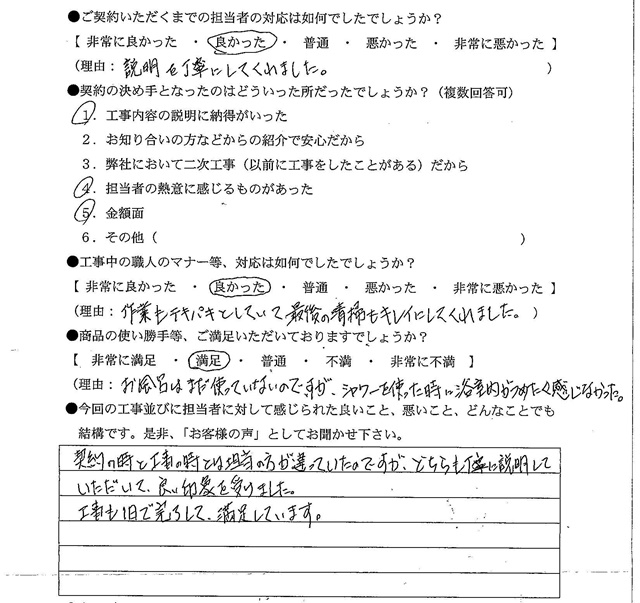 ●ご契約いただくまでの担当者の対応は如何でしたでしょうか？
【 非常に良かった ・ 良かった ・ 普通 ・ 悪かった ・ 非常に悪かった 】
（理由：説明を丁寧にしてくれました。）
●契約の決め手となったのはどういった所だったでしょうか？（複数回答可）
1．工事内容の説明に納得がいった
2．お知り合いの方などからの紹介で安心だから
3．弊社において二次工事（以前に工事をしたことがある）だから
4．担当者の熱意に感じるものがあった
5．金額面
6．その他（ ）
●工事中の職人のマナー等、対応は如何でしたでしょうか？
【 非常に良かった ・ 良かった ・ 普通 ・ 悪かった ・ 非常に悪かった 】
（理由：作業もテキパキとしていて最後の清掃もキレイにしてくれました。）
●商品の使い勝手等、ご満足いただいておりますでしょうか？
【 非常に満足 ・ 満足 ・ 普通 ・ 不満 ・ 非常に不満 】
（理由：お風呂はまだ使っていないのですが、シャワーを使った時に浴室内がつめたく感じなかった。
●今回の工事並びに担当者に対して感じられた良いこと、悪いこと、どんなことでも
結構です。是非、「お客様の声」としてお聞かせ下さい。
契約の時と工事の時とは担当の方が違っていたのですが、どちらも丁寧に説明して
いただいて、良い印象を受けました。
工事も1日で完了して、満足しています。